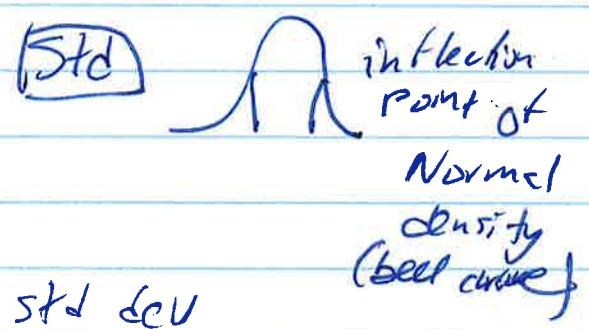 Std
inflection
point of
Normal
density
(bell curve)
std dev